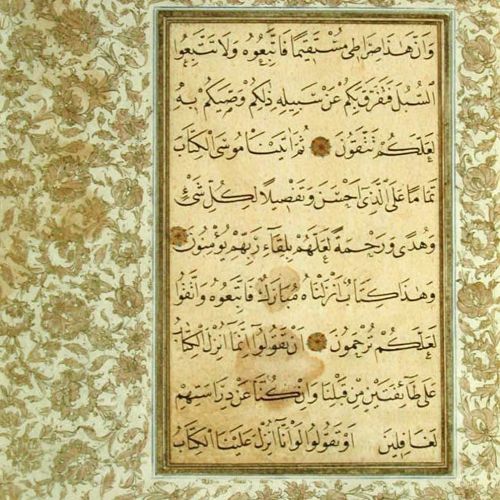 وَاَنَّ هٰذَا صِرَاطِى مُسْتَقِيمًا فَاتَّبِعُوهُ وَلَا تَتَّبِعُوا
السُّبُلَ فَتَفَرَّقَ بِكُمْ عَنْ سَبِيلِهِ ذٰلِكُمْ وَصّٰيكُمْ بِهِ
لَعَلَّكُمْ تَتَّقُونَ ثُمَّ اٰتَيْنَا مُوسَى الْكِتَابَ
تَمَامًا عَلَى الَّذِى اَحْسَنَ وَتَفْصِيلًا لِكُلِّ شَىْءٍ
وَهُدًى وَرَحْمَةً لَعَلَّهُمْ بِلِقَاءِ رَبِّهِمْ يُؤْمِنُونَ
وَهٰذَا كِتَابٌ اَنْزَلْنَاهُ مُبَارَكٌ فَاتَّبِعُوهُ وَاتَّقُوا
لَعَلَّكُمْ تُرْحَمُونَ اَنْ تَقُولُوا اِنَّمَا اُنْزِلَ الْكِتَابُ
عَلَى طَائِفَتَيْنِ مِنْ قَبْلِنَا وَاِنْ كُنَّا عَنْ دِرَاسَتِهِمْ
لَغَافِلِينَ اَوْ تَقُولُوا لَوْ اَنَّا اُنْزِلَ عَلَيْنَا الْكِتَابُ